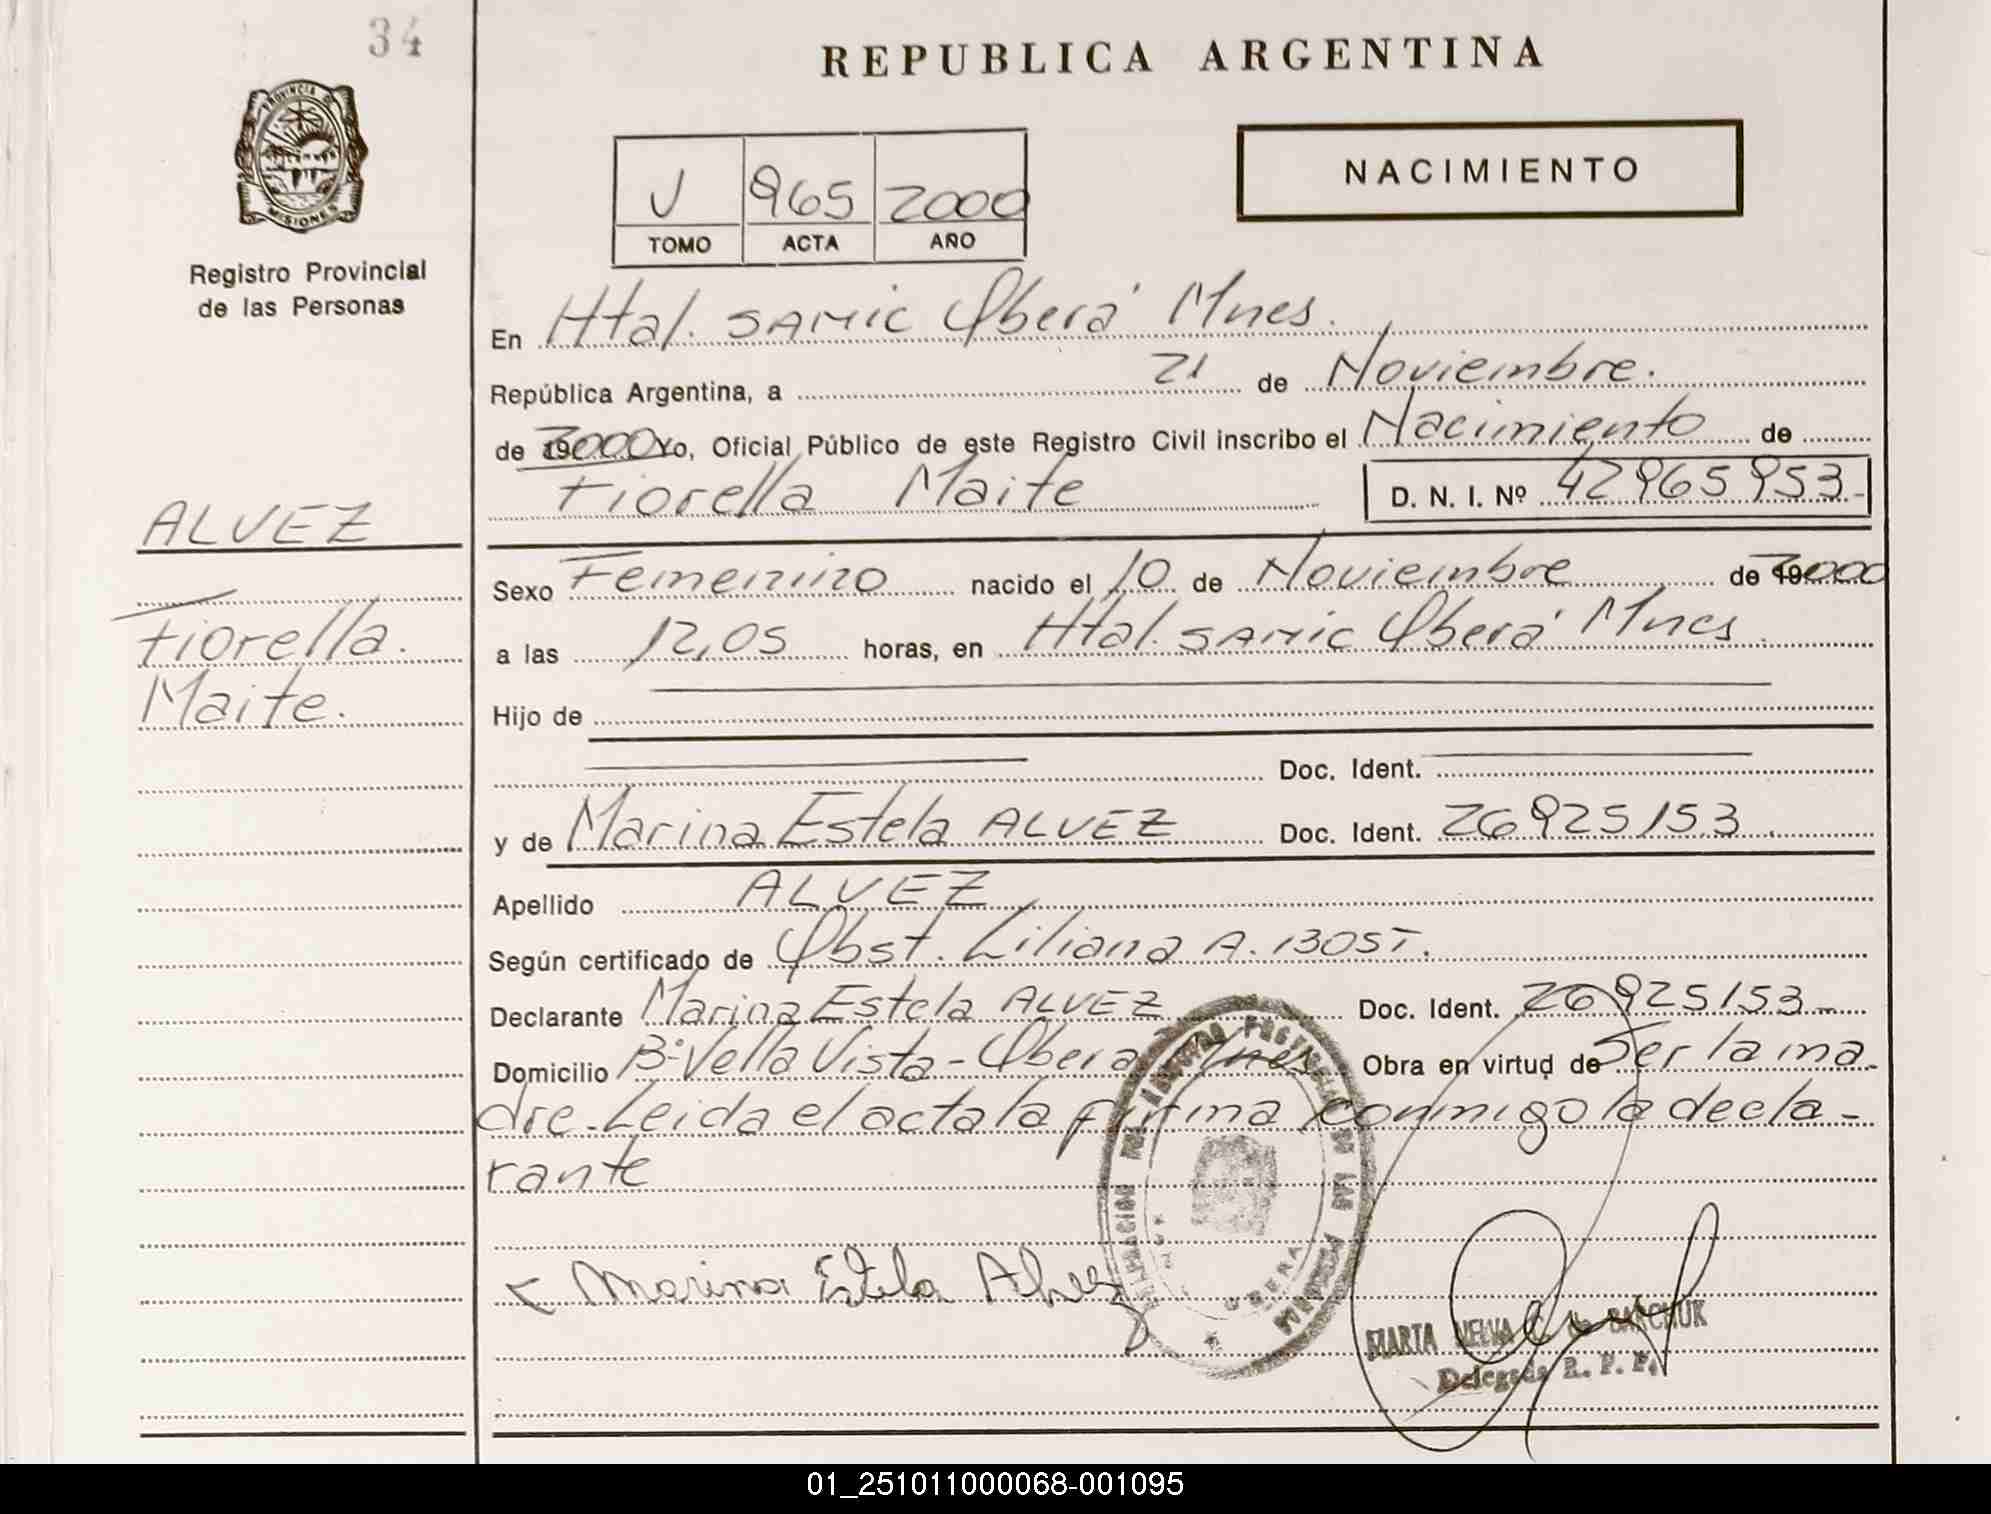 34
REPUBLICA ARGENTINA
PROVINCIA DE
MISIONES
NACIMIENTO
V 965 2000
TOMO ACTA AÑO
Registro Provincial
de las Personas
En Htal. SAMIC Oberá Mnes.
República Argentina, a 21 de Noviembre.
de 2000 Yo, Oficial Público de este Registro Civil inscribo el Nacimiento de
Fiorella Maite D. N. I. Nº 42965953-
ALVEZ
Fiorella.
Maite.
Sexo Femenino nacido el 10 de Noviembre de 2000
a las 12,05 horas, en Htal. SAMIC Oberá Mnes.
Hijo de
Doc. Ident.
y de Marina Estela ALVEZ Doc. Ident. 26925153.
Apellido ALVEZ
Según certificado de Obst. Liliana A. BOST.
Declarante Marina Estela ALVEZ Doc. Ident. 26925153-
Domicilio Bº Vella Vista - Obera Mnes Obra en virtud de Ser la ma-
dre. Leida el acta la firma conmigo la decla-
rante
Marina Estela Alvez
OBERA
MARTA NELVA
Delegada R. P. P.
01_251011000068-001095